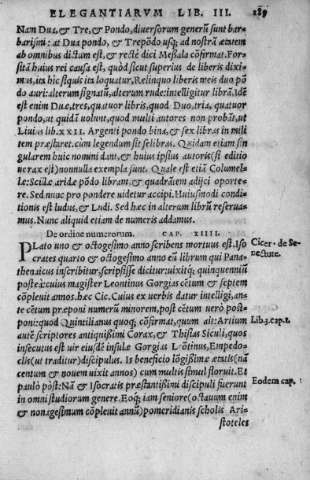 ELEGANTIARVM LIB. III. 289
Nam Duæ, & Tre, & Pondo, diuersorum generũ sunt bar-
barismi: at Dua pondo, & Trepõdo usq; ad nostrã ætatem
ab omnibus dictam est, & rectè dici Meßala cõfirmat. Forß
sitã huius rei causa est, quòd sicut superius de liberis dixi-
mus, ita hic siquis ita loquatur, Relinquo liberis meis duo põ
do auri: alterum signatũ, alterum rude: intelligitur librã. Idẽ
est enim Duæ, tres, quatuor libris, quod Duo, tria, quatuor
pondo, at quidã uolunt, quod multi autores non probãt, ut
Liuius lib. XXII. Argenti pondo bina, & sex libras in mili
tem præstaret. cùm legendum sit selibras. Quidam etiam sin
gularem huic nomini dant, & huius ipsius autoris (si editio
uerax est) nonnulla exempla sunt. Quale est etiã Columel-
læ: Scillæ aridæ põdo libram, & quadrãtem adijci oporte-
re. Sed nunc pro pondere uidetur accipi. Huiusmodi condi-
tionis est ludus, & Ludi. Sed hæc in alterum librũ reserua-
mus. Nunc aliquid etiam de numeris addamus.
De ordine numerorum. CAP. XIIII.
PLato uno & octogesimo anno scribens mortuus est. Iso
crates quarto & octogesimo anno eũ librum qui Pana-
thenaicus inscribitur scripsisse dicitur: uixitq; quinquenniũ
postea: cuius magister Leontinus Gorgias cẽtum & septem
cõpleuit annos. hæc Cic. Cuius ex uerbis datur intelligi, an-
te cẽtum præponi numerũ minorem, post cẽtum uerò post-
poni: quod Quintilianus quoq; cõfirmat, quum ait: Artium
autẽ scriptores antiquißimi Corax, & Thisias Siculi, quos
insecutus est uir eiusdẽ insulæ Gorgias Lẽtinus, Empedo-
clis (ut traditur) discipulus. Is beneficio lõgißimæ ætatis (nã
centum & nouem uixit annos) cum multis simul floruit. Et
paulò pòst: Nã & Isocratis præstantißimi discipuli fuerunt
in omni studiorum genere. Eoq; iam seniore (octauum enim
& nonagesimum cõpleuit annũ) pomeridianis scholis Ari-
stoteles
Cicer. de Se-
nectute.
Lib. 3. cap. 1.
Eodem cap.